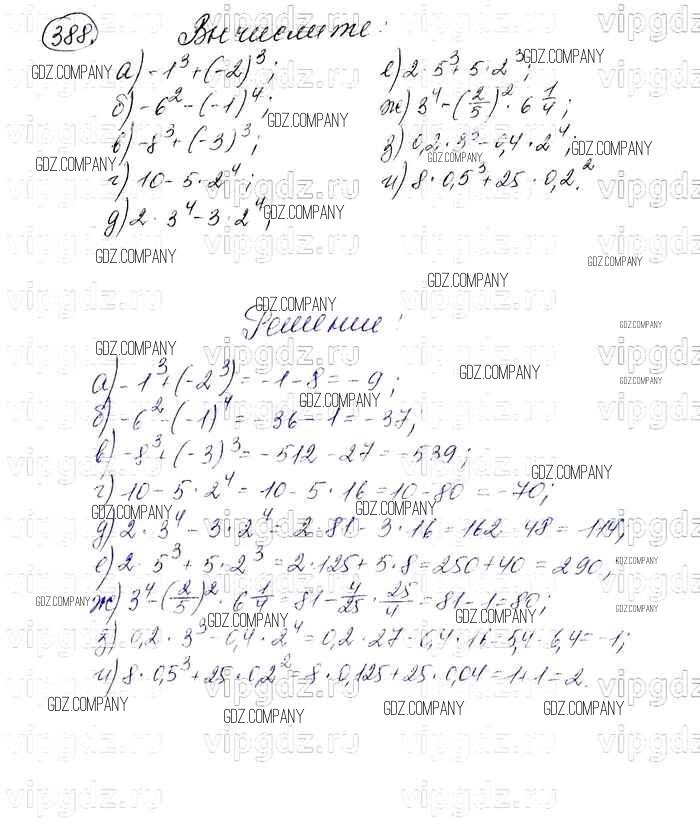 388. Вычислите:
а) -1³+(-2)³;
б) -6² - (-1)⁴;
в) -8³+(-3)³;
г) 10 - 5·2⁴;
д) 2·3⁴-3·2⁴;
е) 2·5³+5·2³;
ж) 3⁴-(2/5)²·6 1/4;
з) 0,2·3³-0,4·2⁴;
и) 8·0,5³+25·0,2.²
Решение:
а) -1³+(-2³)=-1-8=-9;
б) -6²-(-1)⁴=-36-1=-37;
в) -8³+(-3)³=-512-27=-539;
г) 10-5·2⁴=10-5·16=10-80=-70;
д) 2·3⁴-3·2⁴=2·81-3·16=162-48=114;
е) 2·5³+5·2³=2·125+5·8=250+40=290;
ж) 3⁴-(2/5)²·6 1/4=81-4/25·25/4=81-1=80;
з) 0,2·3³-0,4·2⁴=0,2·27-0,4·16=5,4-6,4=-1;
и) 8·0,5³+25·0,2²=8·0,125+25·0,04=1+1=2.
GDZ.COMPANY
vipgdz.ru